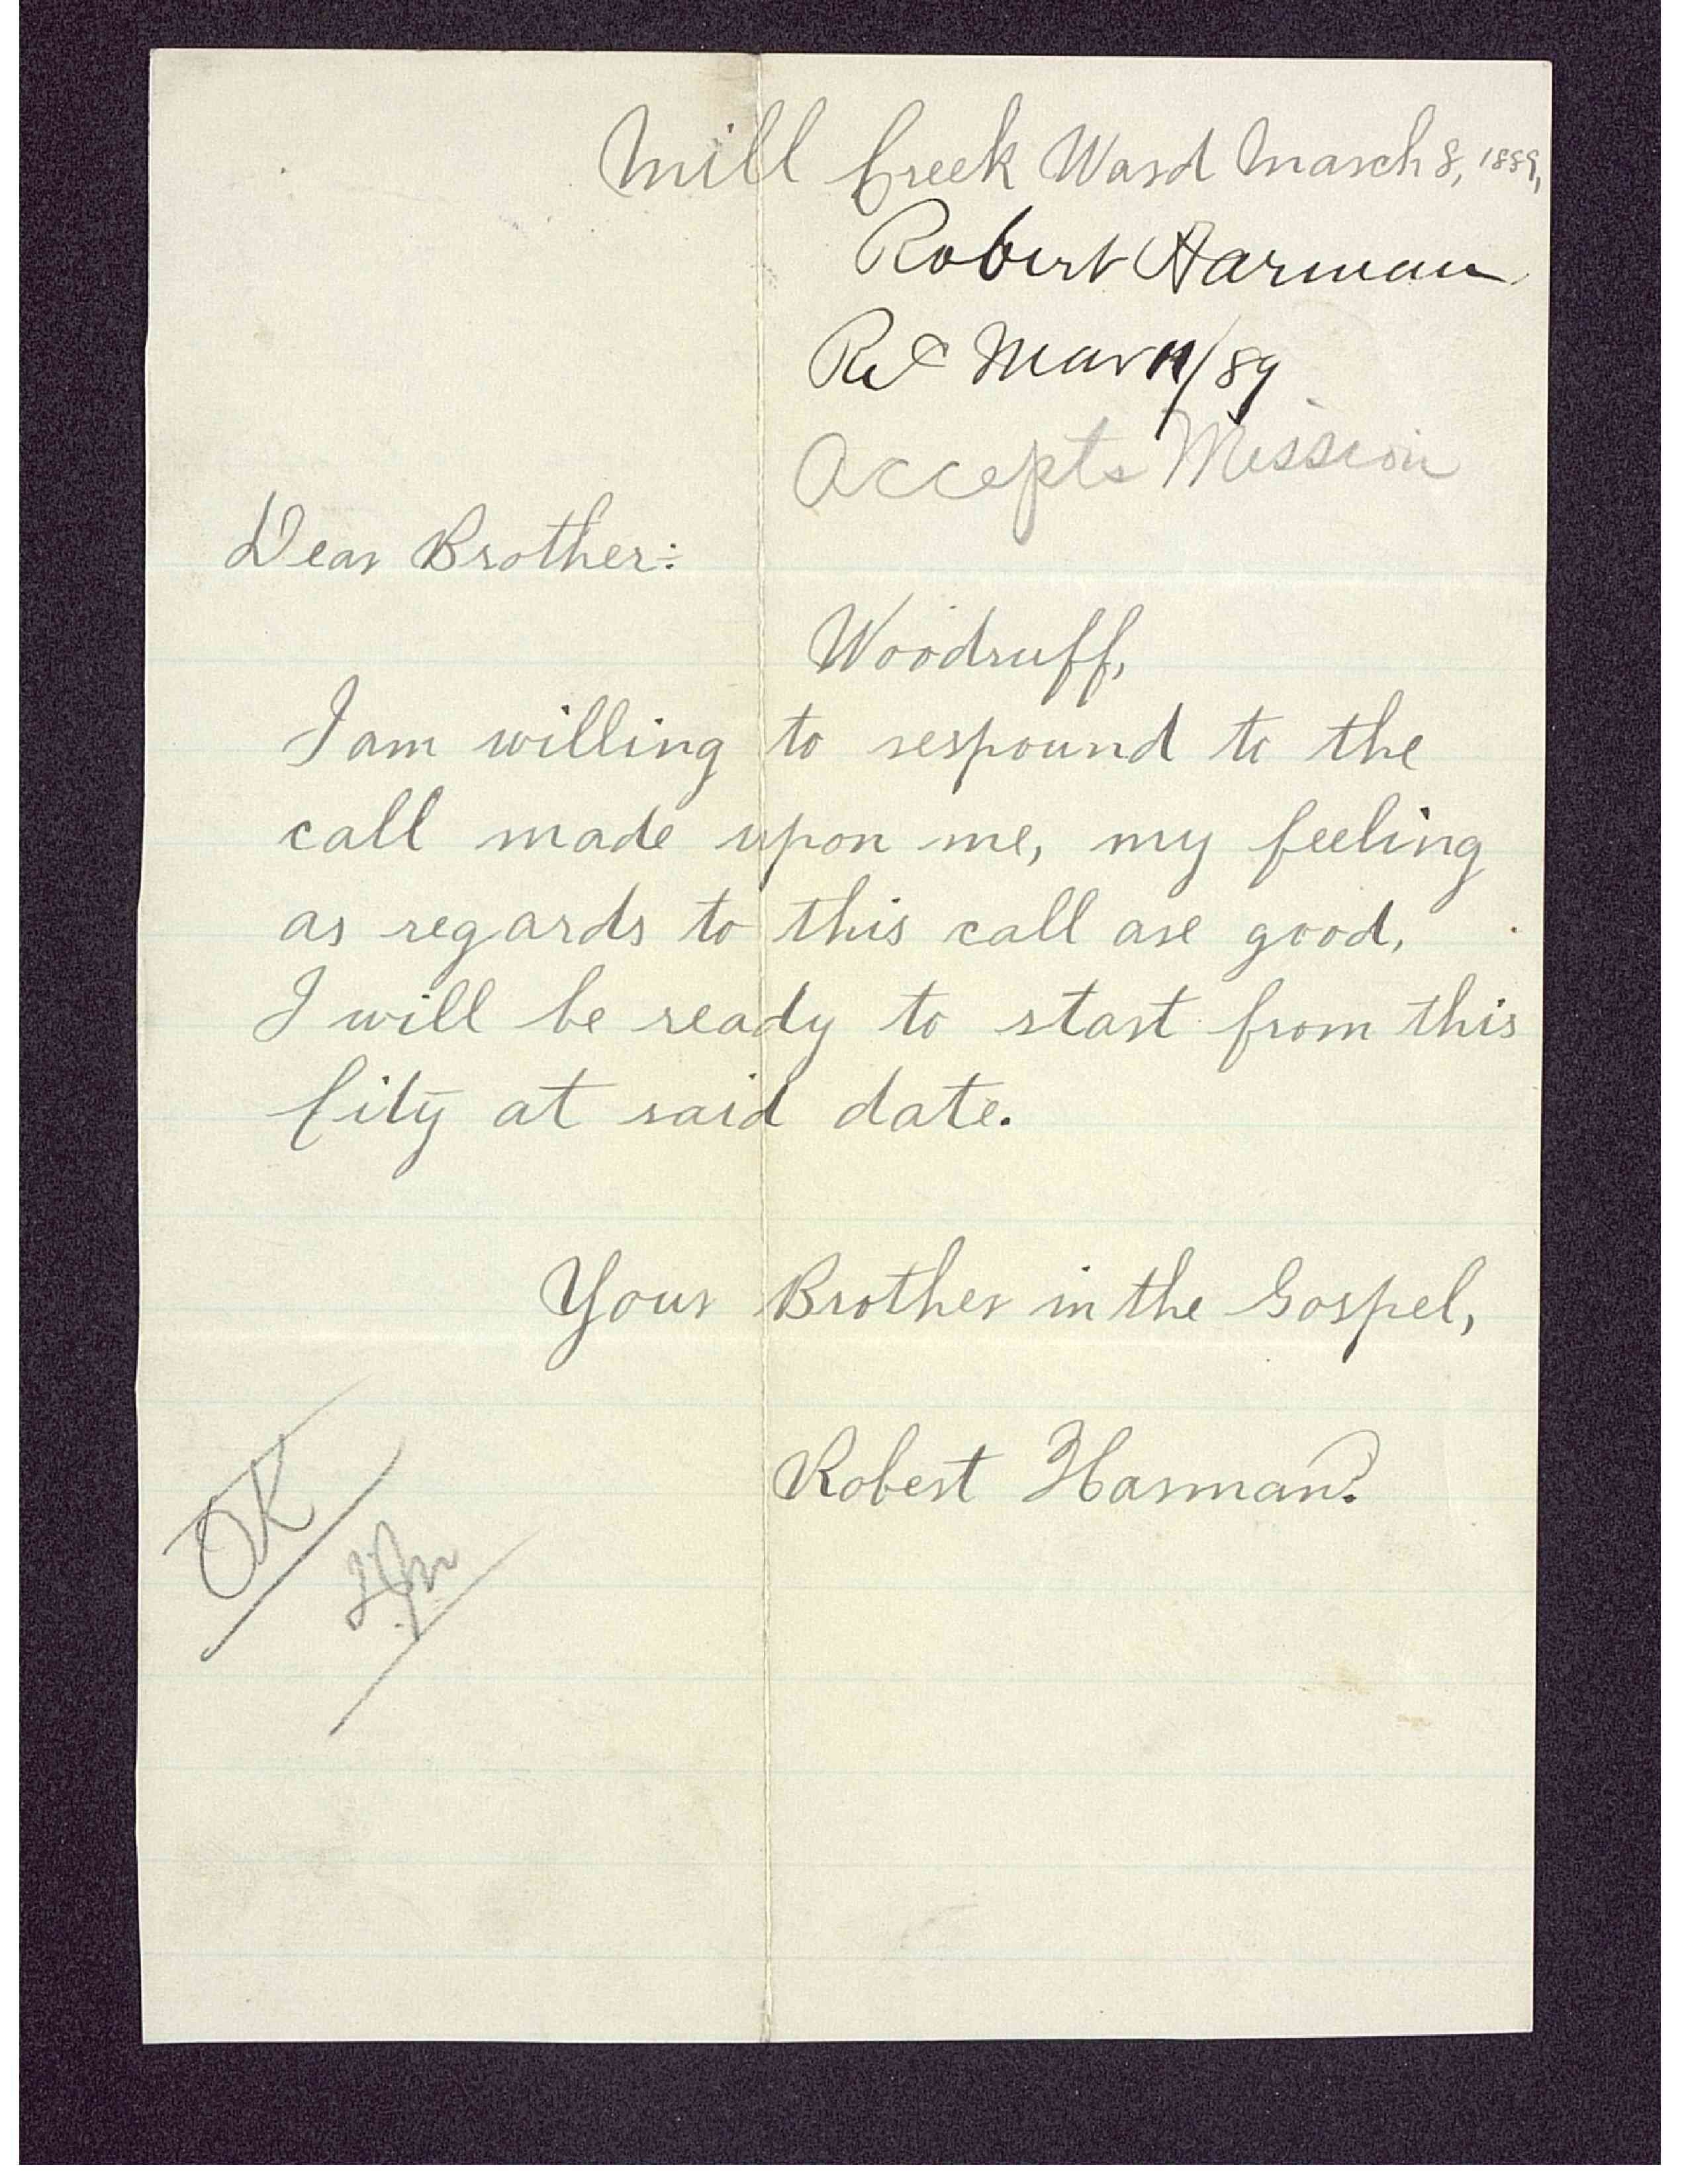 Mill Creek Ward March 8, 1889,
Robert Harman
Rec Mar 11/89
Accepts Mission
Dear Brother:
Woodruff,
I am willing to respound to the
call made upon me, my feeling
as regards to this call are good,
I will be ready to start from this
City at said date.
Your Brother in the Gospel,
Robert Harman.
OK